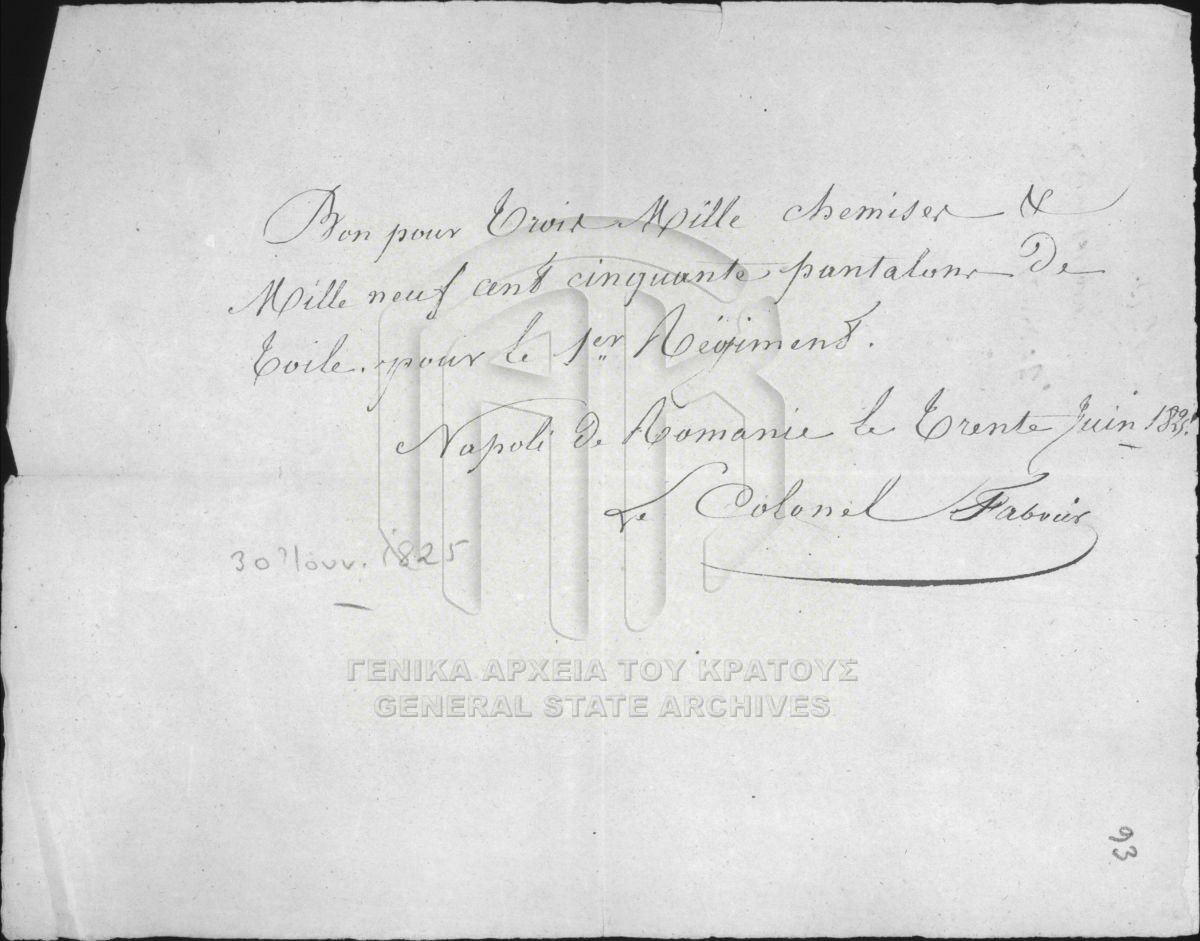 Bon pour Trois Mille chemises &
Mille neuf cent cinquante pantalons de
Toile. pour le 1er Régiment.
Napoli de Romanie le Trente Juin 1825.
Le Colonel Fabvier
30 Ἰουν. 1825
ΓΕΝΙΚΑ ΑΡΧΕΙΑ ΤΟΥ ΚΡΑΤΟΥΣ
GENERAL STATE ARCHIVES
93